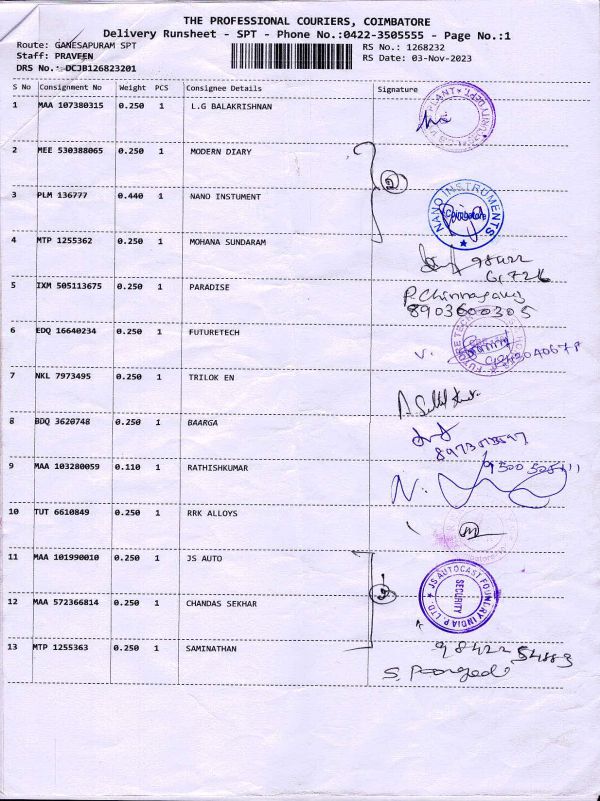 THE PROFESSIONAL COURIERS, COIMBATORE
Delivery Runsheet - SPT - Phone No.:0422-3505555 - Page No.:1
Route: GANESAPURAM SPT
RS No.: 1268232
Staff: PRAVEEN
RS Date: 03-Nov-2023
DRS No.: DCJB126823201
S No Consignment No Weight PCS Consignee Details Signature
1 MAA 107380315 0.250 1 L.G BALAKRISHNAN
2 MEE 530388065 0.250 1 MODERN DIARY
3 PLM 136777 0.440 1 NANO INSTUMENT
NANO INSTRUMENTS
Coimbatore
4 MTP 1255362 0.250 1 MOHANA SUNDARAM
5 IXM 505113675 0.250 1 PARADISE
8903600305
6 EDQ 16640234 0.250 1 FUTURETECH
7 NKL 7973495 0.250 1 TRILOK EN
8 BDQ 3620748 0.250 1 BAARGA
9 MAA 103280059 0.110 1 RATHISHKUMAR
10 TUT 6610849 0.250 1 RRK ALLOYS
11 MAA 101990010 0.250 1 JS AUTO
JS AUTOCAST FOUNDRY INDIA P. LTD
SECURITY
12 MAA 572366814 0.250 1 CHANDAS SEKHAR
13 MTP 1255363 0.250 1 SAMINATHAN